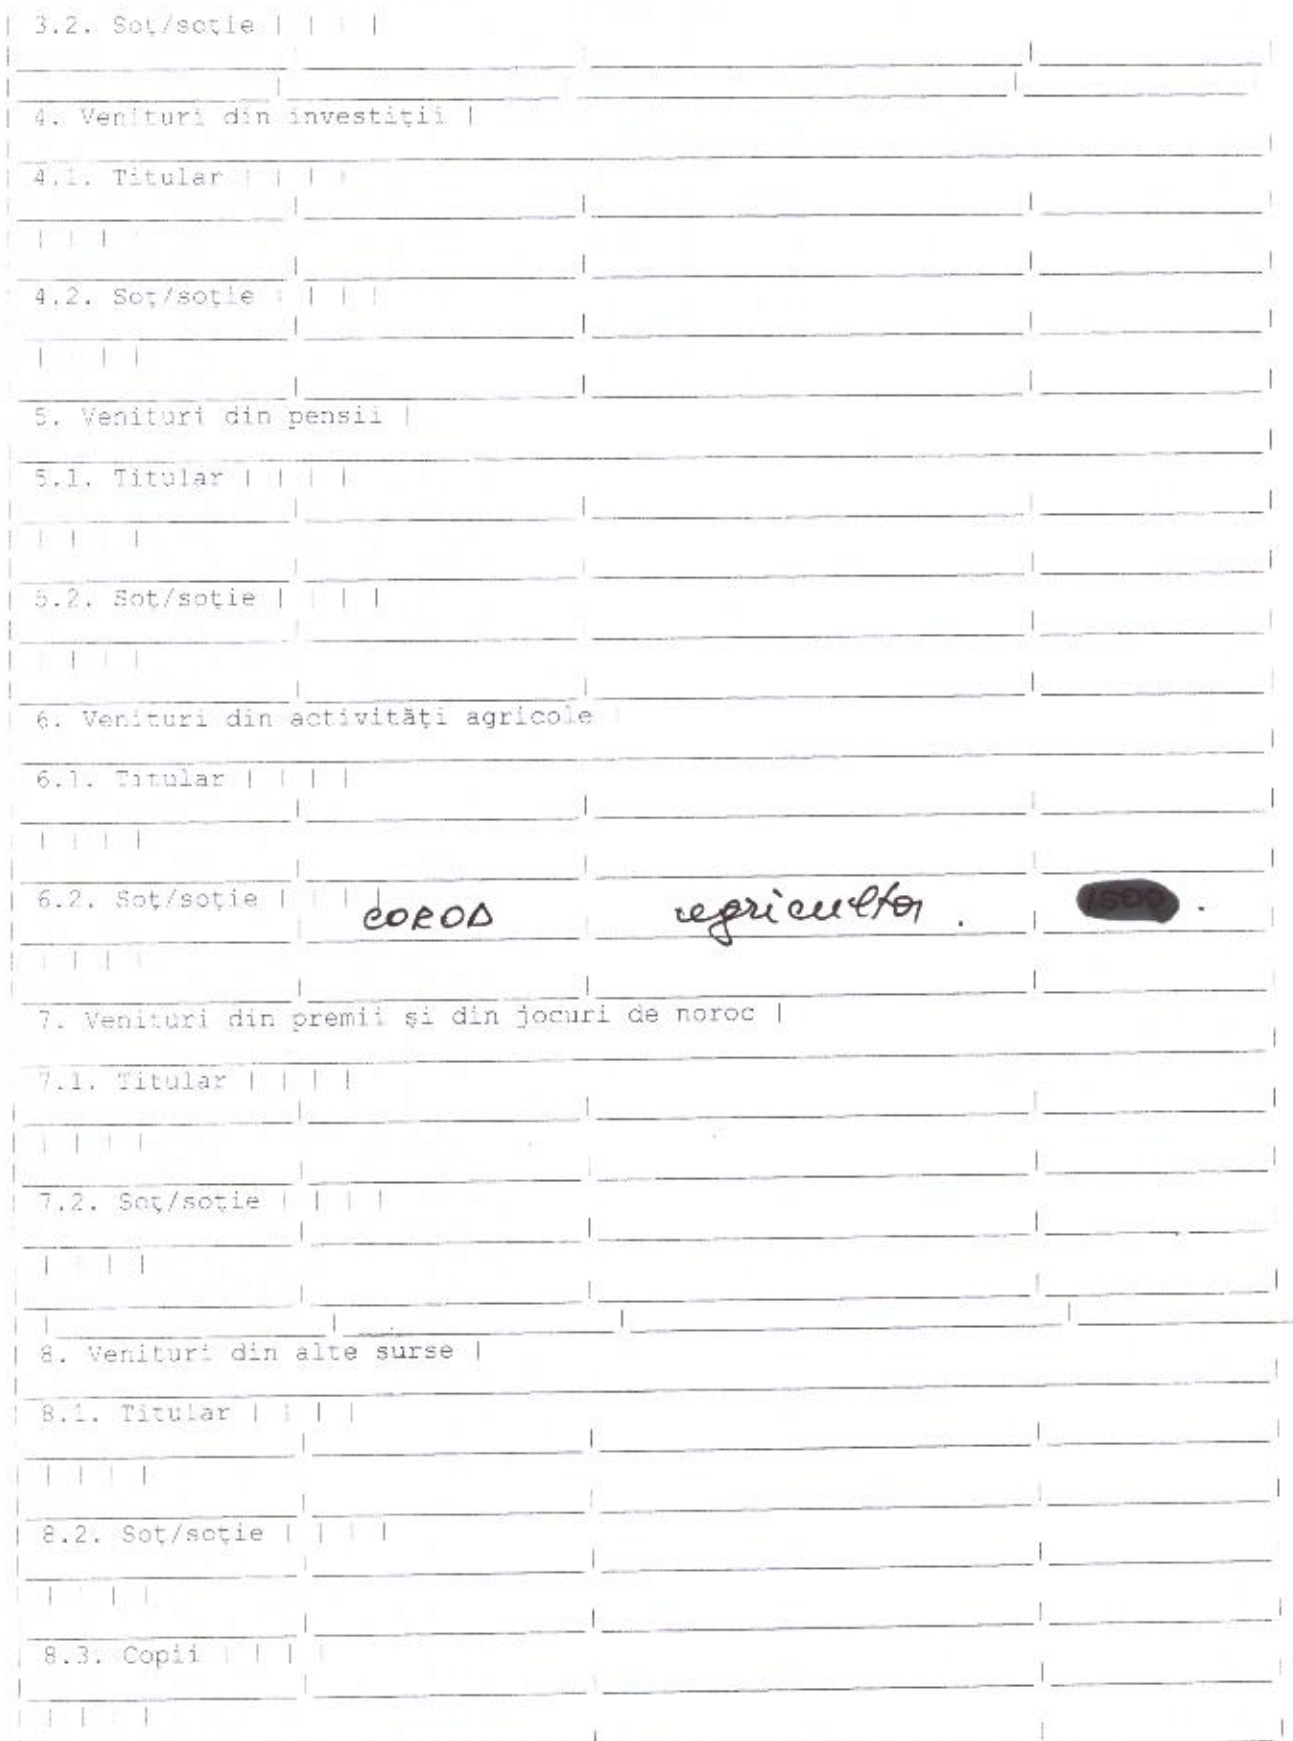 3.2. Soţ/soţie | | | |
4. Venituri din investiţii |
4.1. Titular | | | |
| | |
4.2. Soţ/soţie | | | |
| | | |
5. Venituri din pensii |
5.1. Titular | | | |
| | | |
5.2. Soţ/soţie | | | |
| | | |
6. Venituri din activităţi agricole |
6.1. Titular | | | |
| | | |
6.2. Soţ/soţie | | | COROD agricultor .
| | | |
7. Venituri din premii şi din jocuri de noroc |
7.1. Titular | | | |
| | | |
7.2. Soţ/soţie | | | |
| | | |
8. Venituri din alte surse |
8.1. Titular | | | |
| | | |
8.2. Soţ/soţie | | | |
| | | |
8.3. Copii | | | |
| | | |